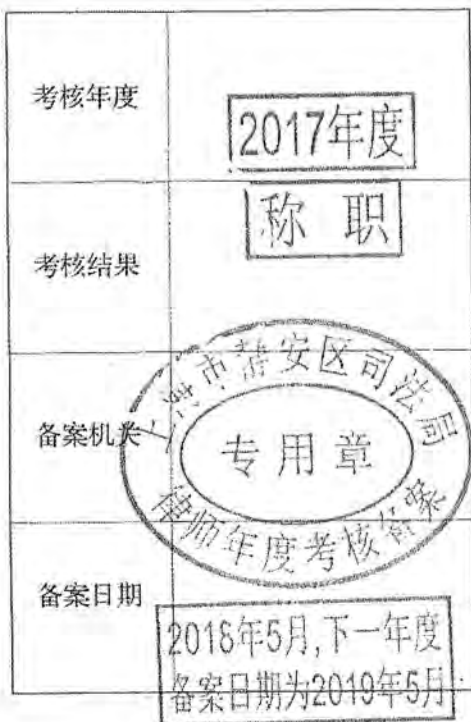 考核年度
2017年度
称职
考核结果
上海市静安区司法局
备案机关
专用章
律师年度考核备案
备案日期
2018年5月,下一年度
备案日期为2019年5月